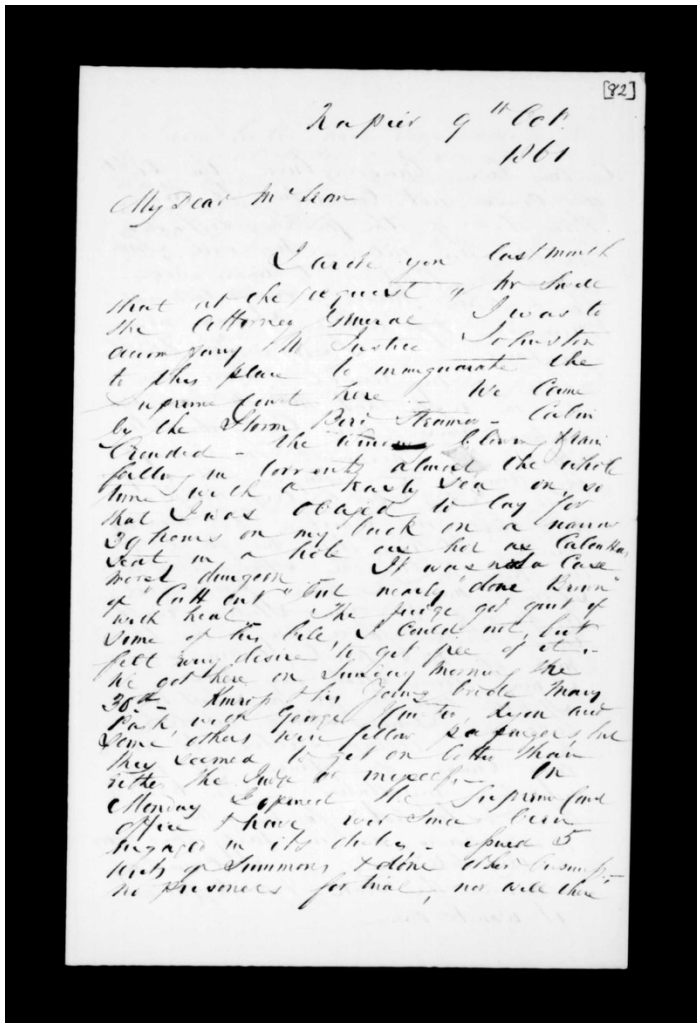 [82]
Napier 9th Oct.
1861
My Dear McLean
I wrote you last month
that at the request of Mr Swell
the Attorney General I was to
accompany Mr Justice Johnston
to this place to inaugurate the
Supreme Court here. We came
by the Storm Bird Steamer - Cabin
Crowded - the blowing & rain
falling in torrents almost the whole
time with a nasty sea on, so
that I was obliged to lay for
30 hours on my back on a narrow
seat in a hole as hot as Calcutta
worst dungeon. It was not a case
of "Cutt out" but nearly "done Brown"
with heat. The Judge got quit of
some of his bile, I could not, but
felt every desire to get free of it.
We got here on Sunday morning the
30th - & his Young bride Mary
Park, with George Hunter, Lyon and
some others were fellow passengers, but
they seemed to get on better than
either the Judge or myself. On
Monday I opened the Supreme Court
Office & have ever since been
engaged in its duties - issued 5
writs of Summons & done other business,
no prisoners for trial, nor will there